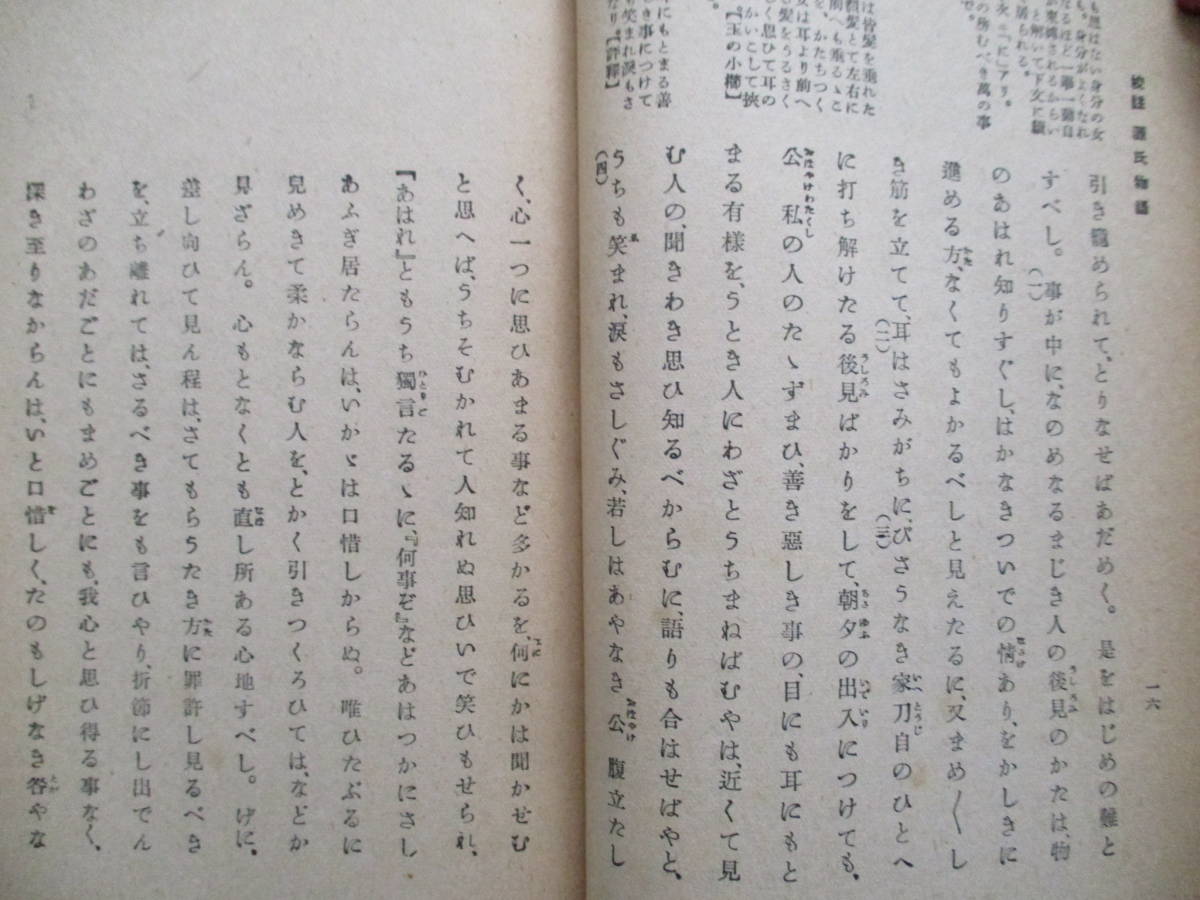 校註 源氏物語
一六
引き籠められて、とりなせばあだめく。是をはじめの難と
すべし。(一)事が中に、なのめなるまじき人の後見のかたは、物
のあはれ知りすぐし、はかなきついでの情あり、をかしきに
進める方、なくてもよかるべしと見えたるに、又まめ〱し
き筋を立てて、(二)耳はさみがちに、(三)びさうなき家刀自のひとへ
に打ち解けたる後見ばかりをして、朝夕の出入につけても、
公私の人のたゝずまひ、善き惡しき事の、目にも耳にもと
まる有樣を、うとき人にわざとうちまねばむやは、近くて見
む人の、聞きわき思ひ知るべからむに、語りも合はせばやと、
(四)うちも笑まれ、淚もさしぐみ、若しはあやなき公腹立たし
も思はない身分の女
も。身分がよくなれ
なるほど一擧一動自
が束縛されるからい
と解いて下女に級
居られる。
火＝「に」アリ。
の務むべき萬の事
は皆髮を垂れた
額髮とて左右に
前へも垂るゝこ
を、かたちつく
女は耳より前へ
も髮をうるさく
しく思ひて耳の
かいこして挾
【玉の小櫛】
にもとまる善
き事につけて
り笑まれ淚もさ
なり。【評釋】
く、心一つに思ひあまる事など多かるを、何にかは聞かせむ
と思へば、うちそむかれて人知れぬ思ひいで笑ひもせられ、
『あはれ』ともうち獨言たるゝに、『何事ぞ』などあはつかにさし
あふぎ居たらんは、いかゞは口惜しからぬ。唯ひたぶるに
兒めきて柔かならむ人を、とかく引きつくろひては、などか
見ざらん。心もとなくとも直し所ある心地すべし。げに、
差し向ひて見ん程は、さてもらうたき方に罪許し見るべき
を、立ち離れては、さるべき事をも言ひやり、折節にし出でん
わざのあだごとにもまめごとにも、我心と思ひ得る事なく、
深き至りなからんは、いと口惜しく、たのもしげなき咎やな